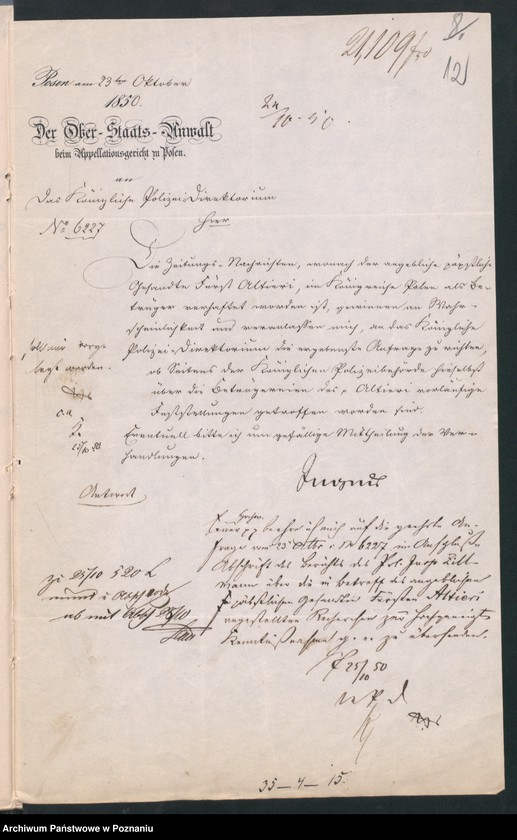 21,109/50
8/1
12
Posen am 23ten Oktober
1850.
24/10 - 50.
Der Ober-Staats-Anwalt
beim Appellationsgericht zu Posen.
an
Das Königliche Polizei-Direktorium
Hier
No 6227
Die Zeitungs-Nachrichten, wonach der angebliche päpstliche
Gesandte Fürst Altieri, im Königreiche Polen als Be-
trüger verhaftet worden ist, gewinnen an Wahr-
scheinlichkeit und veranlassen mich, an das Königliche
Polizei-Direktorium die ergebenste Anfrage zu richten,
ob Seitens der Königlichen Polizeibehörde hieselbst
über die Betrügereien des Altieri vorläufige
Feststellungen getroffen worden sind.
Eventuell bitte ich um gefällige Mittheilung der Ver-
handlungen.
soll mir vorge-
legt werden.
25/10 50
Antwort
beehre ich mich auf die geehrte An-
frage vom 23 No 6227 im Anschlusse
Abschrift des Berichts des Pol.
über die in Betreff des angeblichen
päpstlichen Gesandten Fürsten Altieri
angestellten Recherchen zur
Kenntnißnahme zu übersenden.
25/10 50
zu 25/10 520 L
ab mit 25/10
35 - 4 - 15.
Archiwum Państwowe w Poznaniu